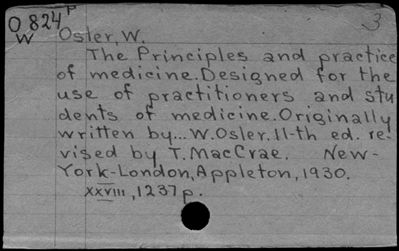 O 824 P 3
W Osler, W.
The Principles and practice
of medicine. Designed for the
use of practitioners and stu
dents of medicine. Originally
written by... W. Osler. 11-th ed. re-
vised by T. MacCrae. New-
York-London, Appleton, 1930.
XXVIII, 1237 p.